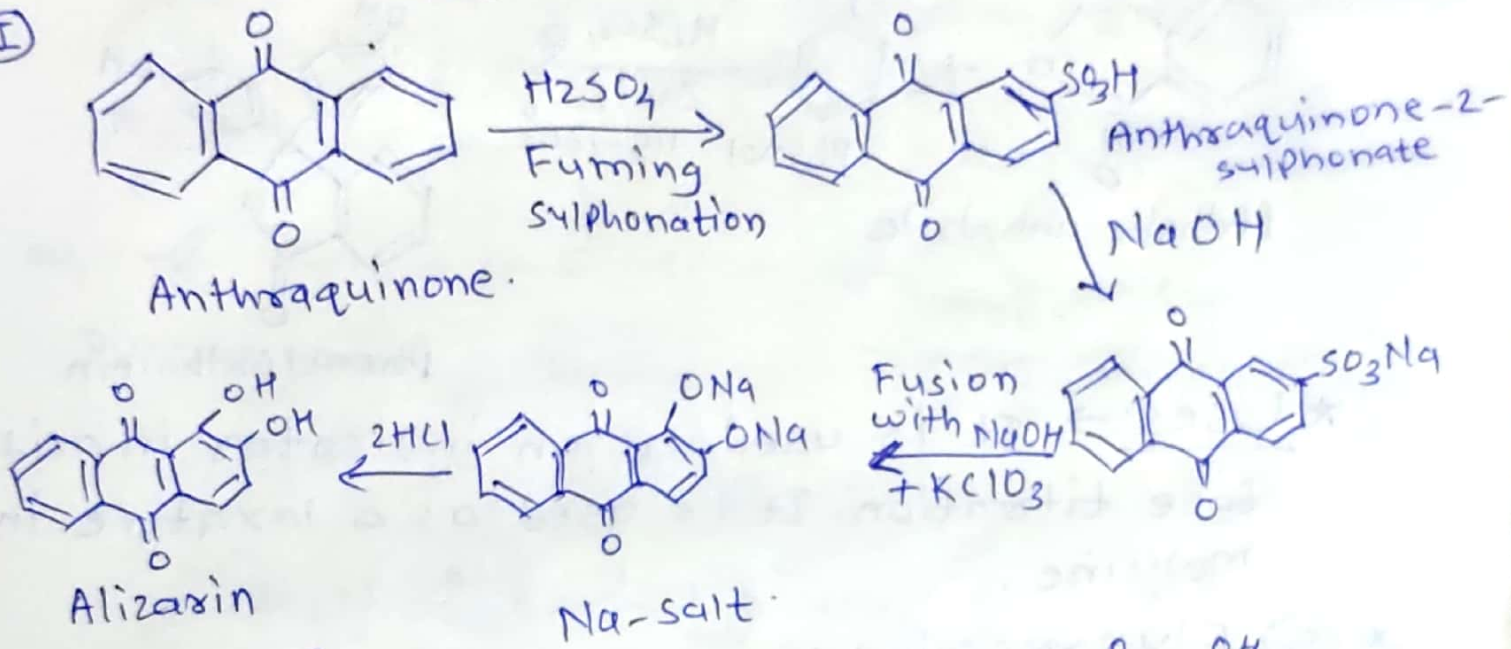 I
O
O
Anthraquinone.
H2SO4
Fuming
sulphonation
O
SO3H
O
Anthraquinone-2-
sulphonate
NaOH
O
SO3Na
O
Fusion
with NaOH
+ KClO3
O
ONa
ONa
O
Na-salt.
2HCl
O
OH
OH
O
Alizarin